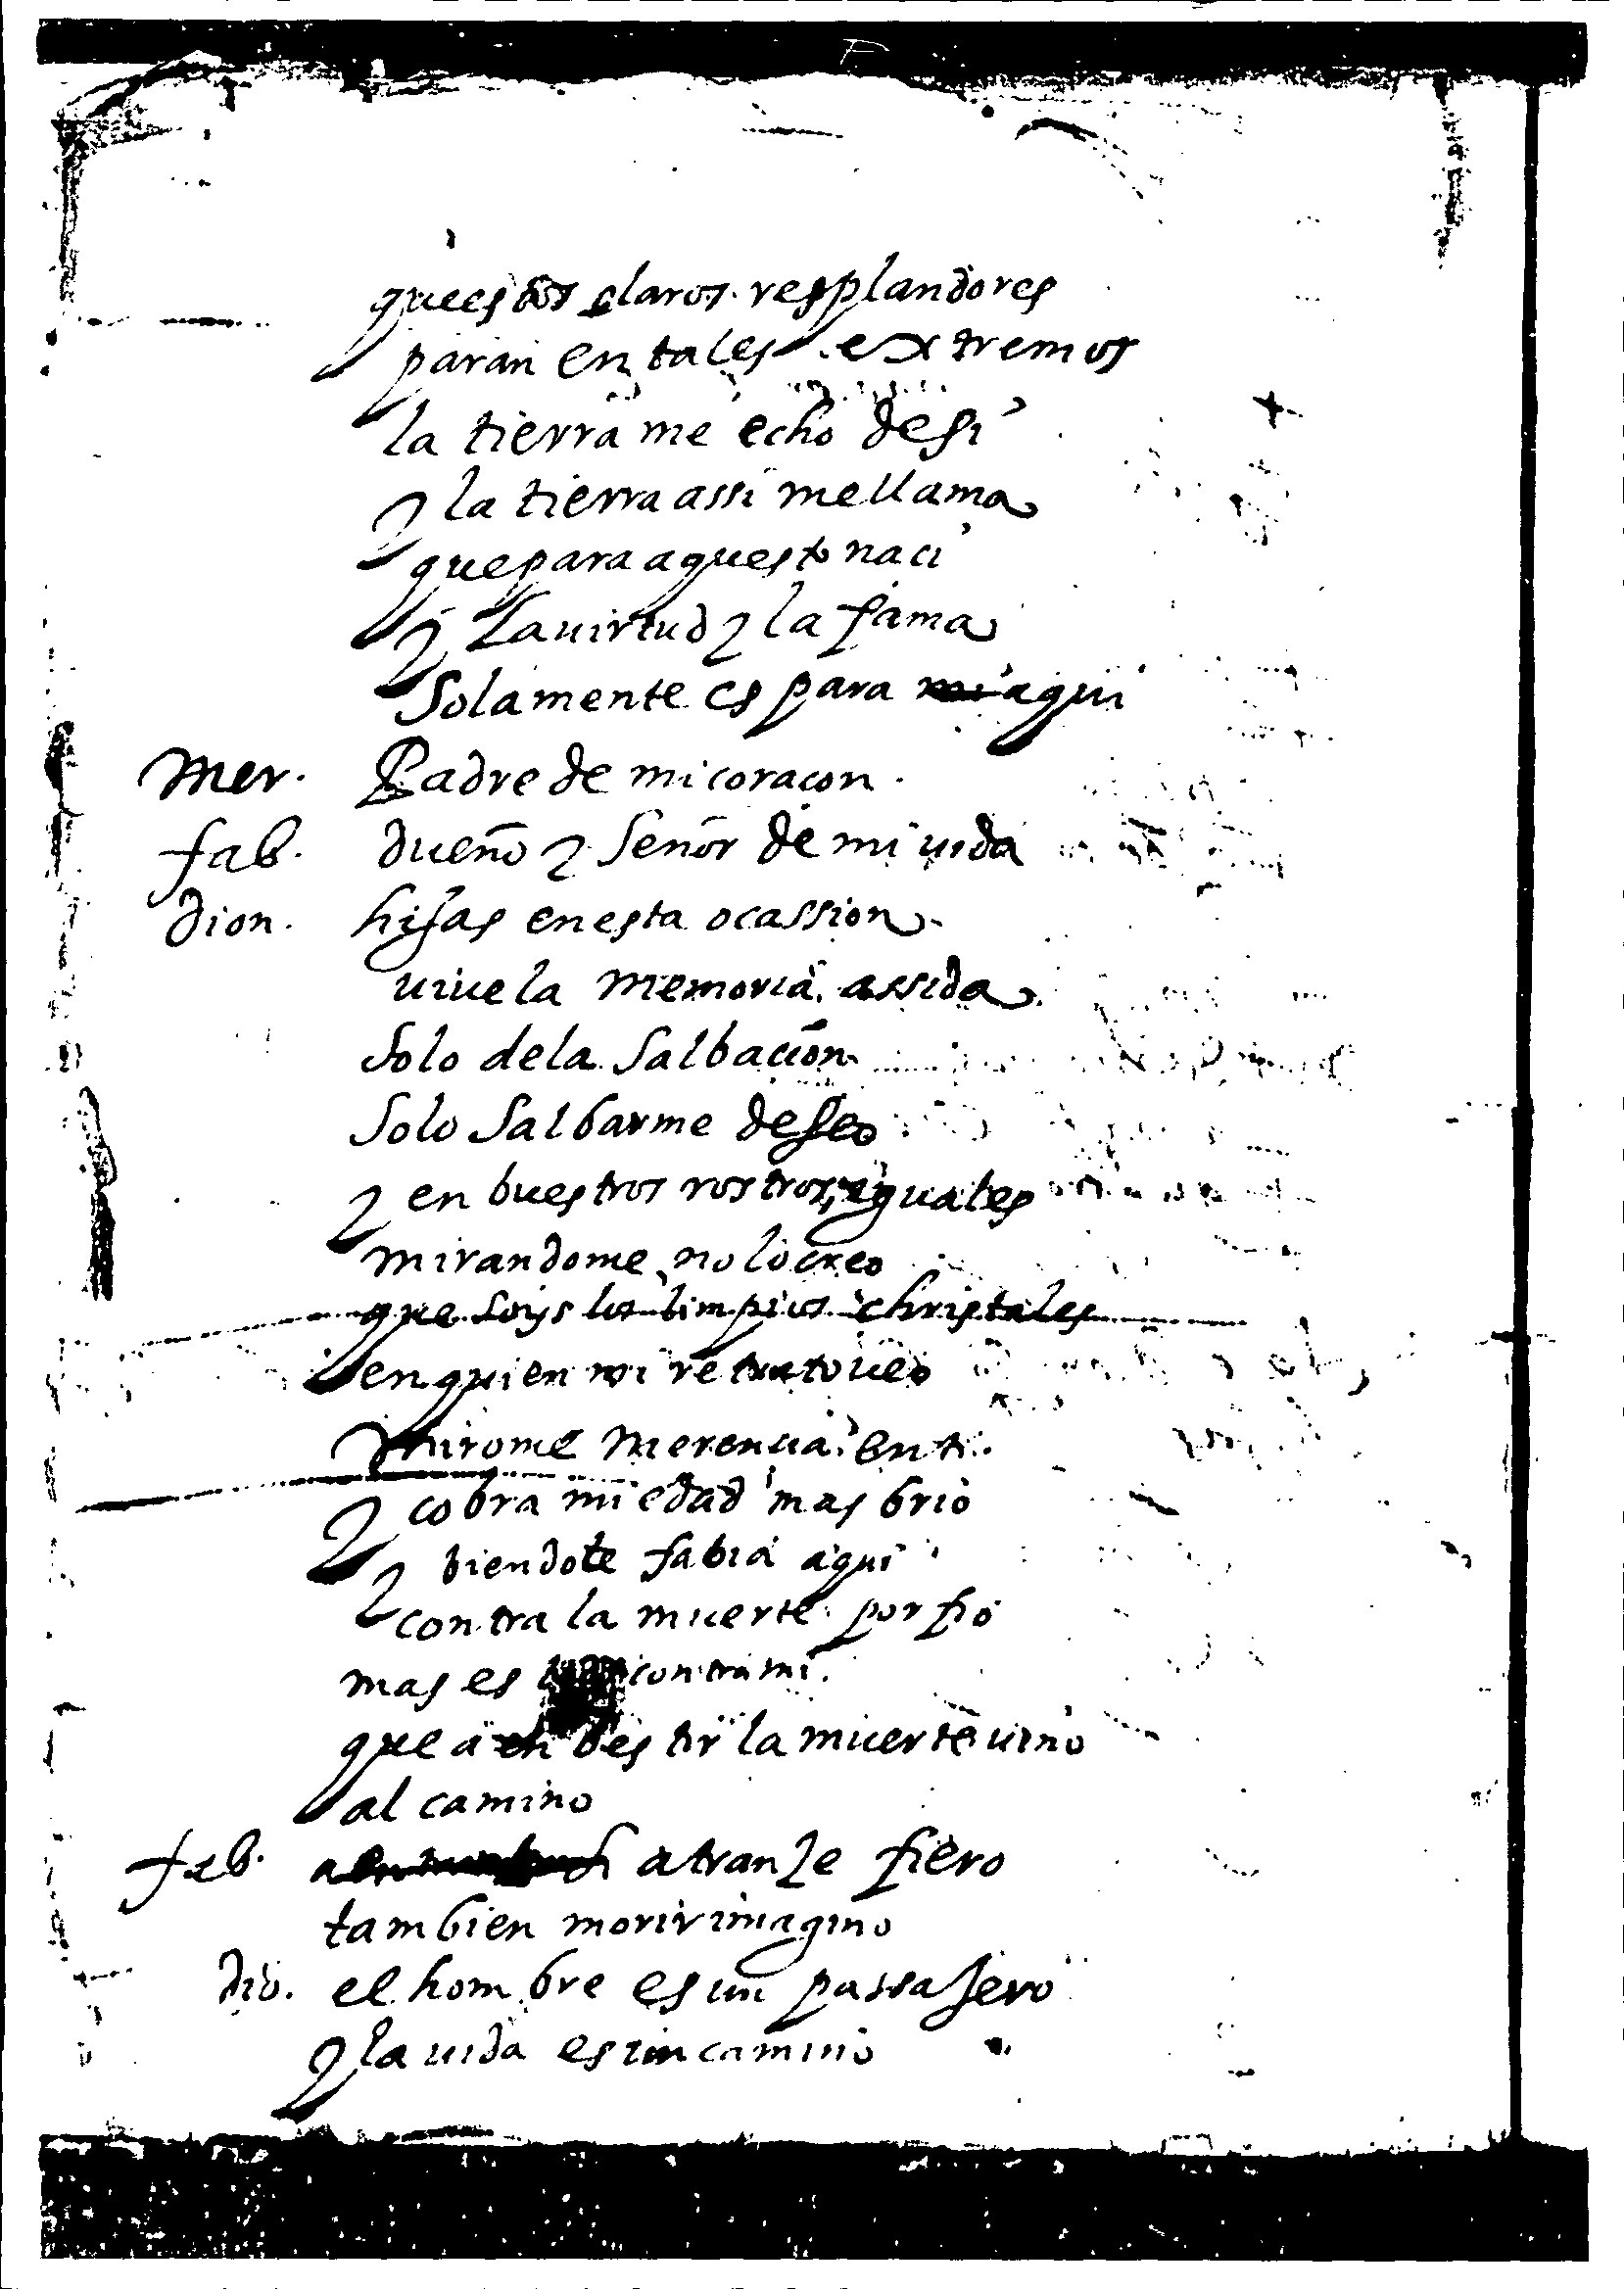 que estos claros resplandores
paran en tales extremos
la tierra me echo de si
y la tierra assi me llama
que para aquesto naci
y la uirtud y la fama
Solamente es para mi aqui
Mer. Padre de mi coraçon.
fab. dueño y Señor de mi uida
dion. hijas en esta ocassion
uiue la memoria assida
Solo de la Salbacion
Solo Salbarme desseo
y en buestros rostros yguales
mirandome no lo creo
que soys los limpios christales
en quien mi retrato ueo
mirome Merencia en ti.
y cobra mi edad mas brio
y biendote fabia aqui
contra la muerte porfio
mas es contra mi.
que a enbestir la muerte uino
al camino
fab. a tranze fiero
tambien morir imagino
dio. el hombre es un passajero
y la uida es un camino